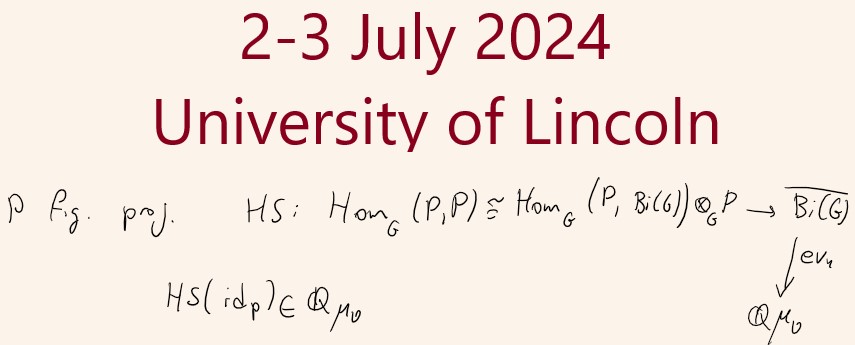 2-3 July 2024
University of Lincoln
P f.g. proj. HS: Hom_G (P,P) ≅ Hom_G (P, Bi(G)) ⊗_G P → \overline{Bi(G)}
↓ ev_4
HS(id_P) ∈ ℚμ_0 ℚμ_0